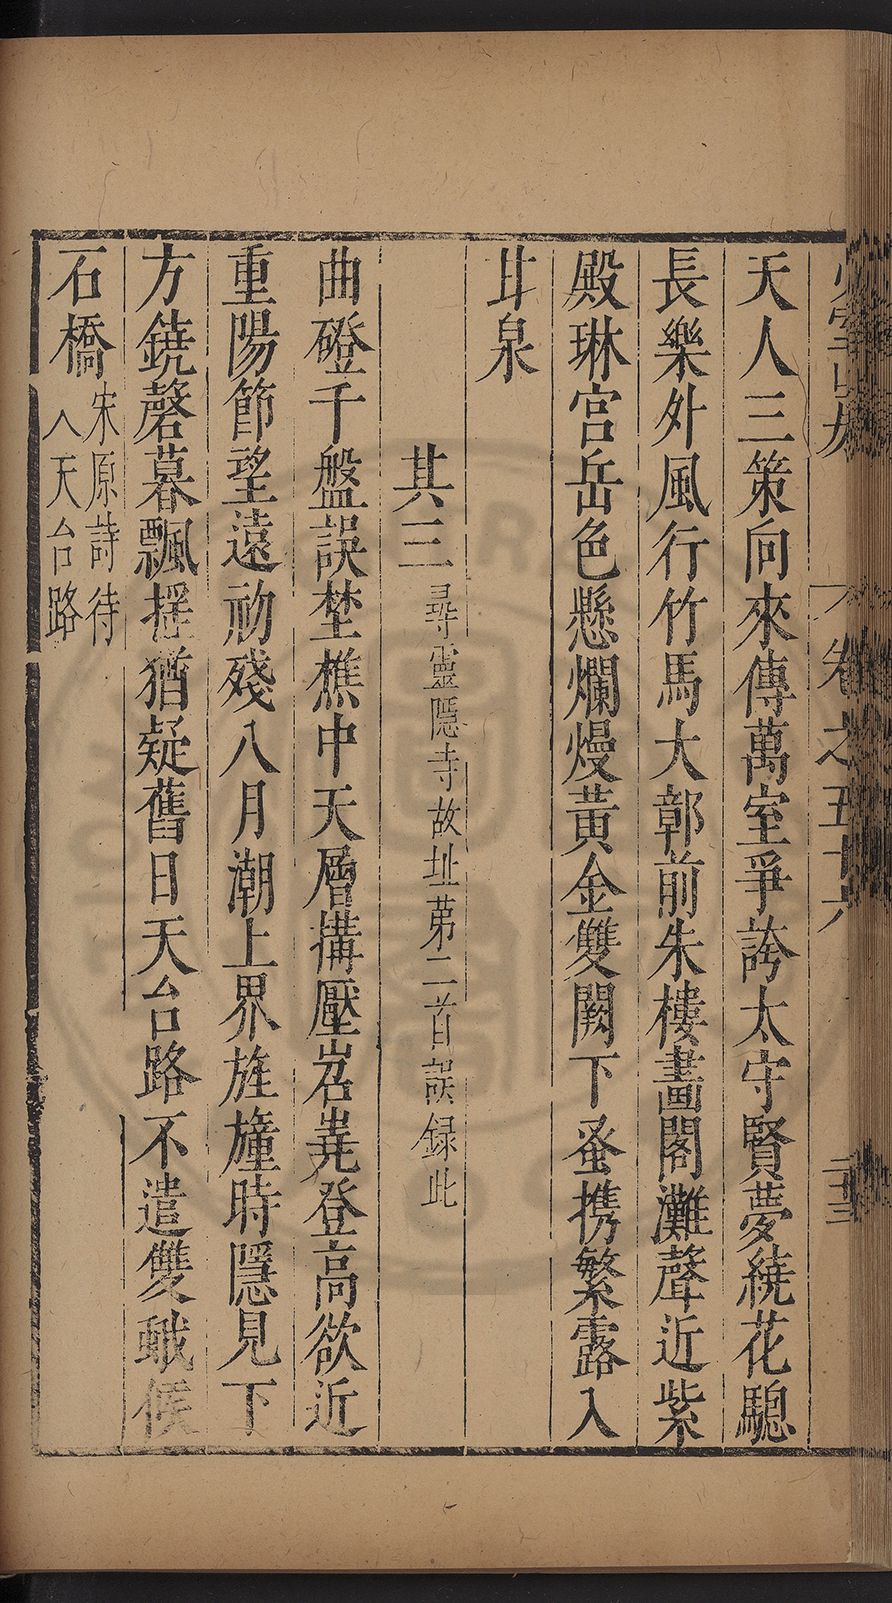 卷之五十六
二十三
天人三策向來傳萬室爭誇太守賢夢繞花驄
長樂外風行竹馬大鄣前朱樓畫閣灘聲近紫
殿琳宮岳色懸爛熳黃金雙闕下蚤携繁露入
甘泉
其三尋靈隱寺故址第二首誤録此
曲磴千盤誤埜樵中天層搆壓岧嶤登高欲近
重陽節望遠初殘八月潮上界旌旛時隱見下
方鐃磬暮飄揺猶疑舊日天台路不遣雙蛾候
石橋宋原詩待
入天台路